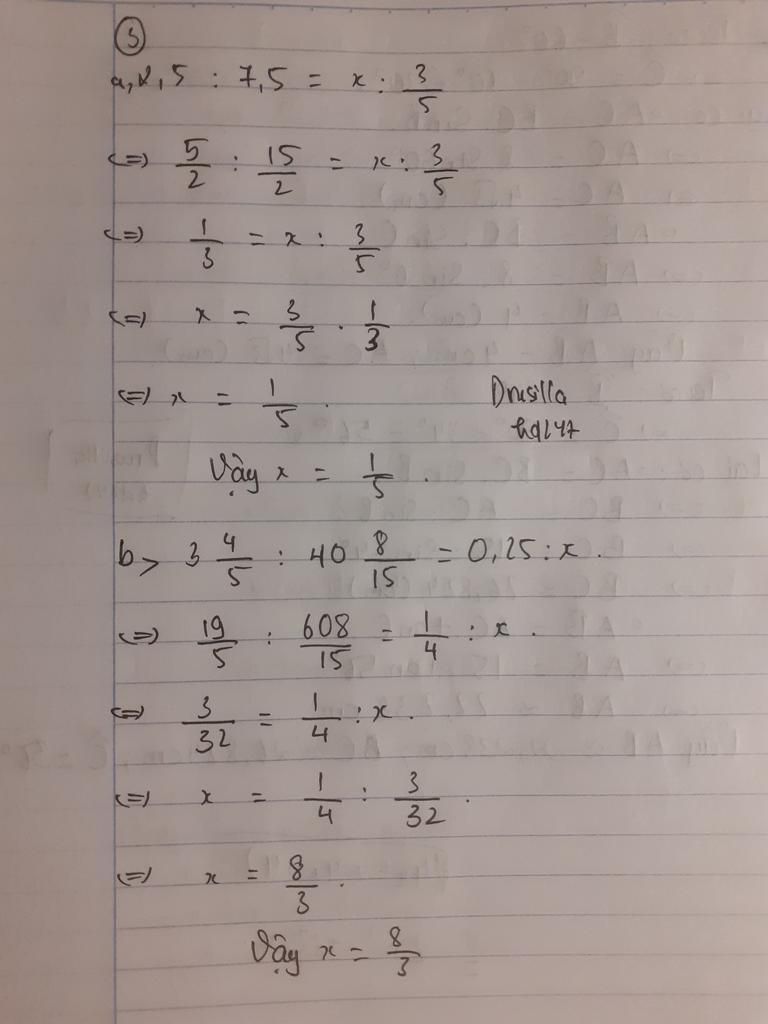 3
a, 2,5 : 7,5 = x : 3/5
<=> 5/2 : 15/2 = x : 3/5
<=> 1/3 = x : 3/5
<=> x = 3/5 . 1/3
<=> x = 1/5 .
Drusilla
Vậy x = 1/5 .
b> 3 4/5 : 40 8/15 = 0,25 : x .
<=> 19/5 : 608/15 = 1/4 : x .
<=> 3/32 = 1/4 : x .
<=> x = 1/4 : 3/32 .
<=> x = 8/3 .
Vậy x = 8/3